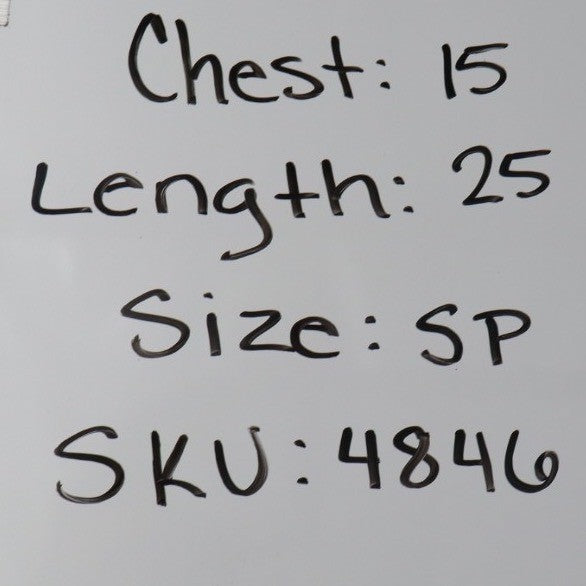 Chest: 15
Length: 25
Size: SP
SKU: 4846